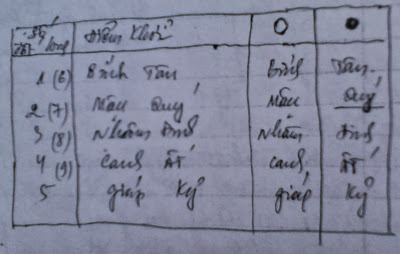 Điểm Khởi ○ ●
1 (6) Bính Tân Bính Tân
2 (7) Mậu Quý Mậu Quý
3 (8) Nhâm Đinh Nhâm Đinh
4 (9) Canh Ất Canh Ất
5 giáp Kỷ giáp Kỷ